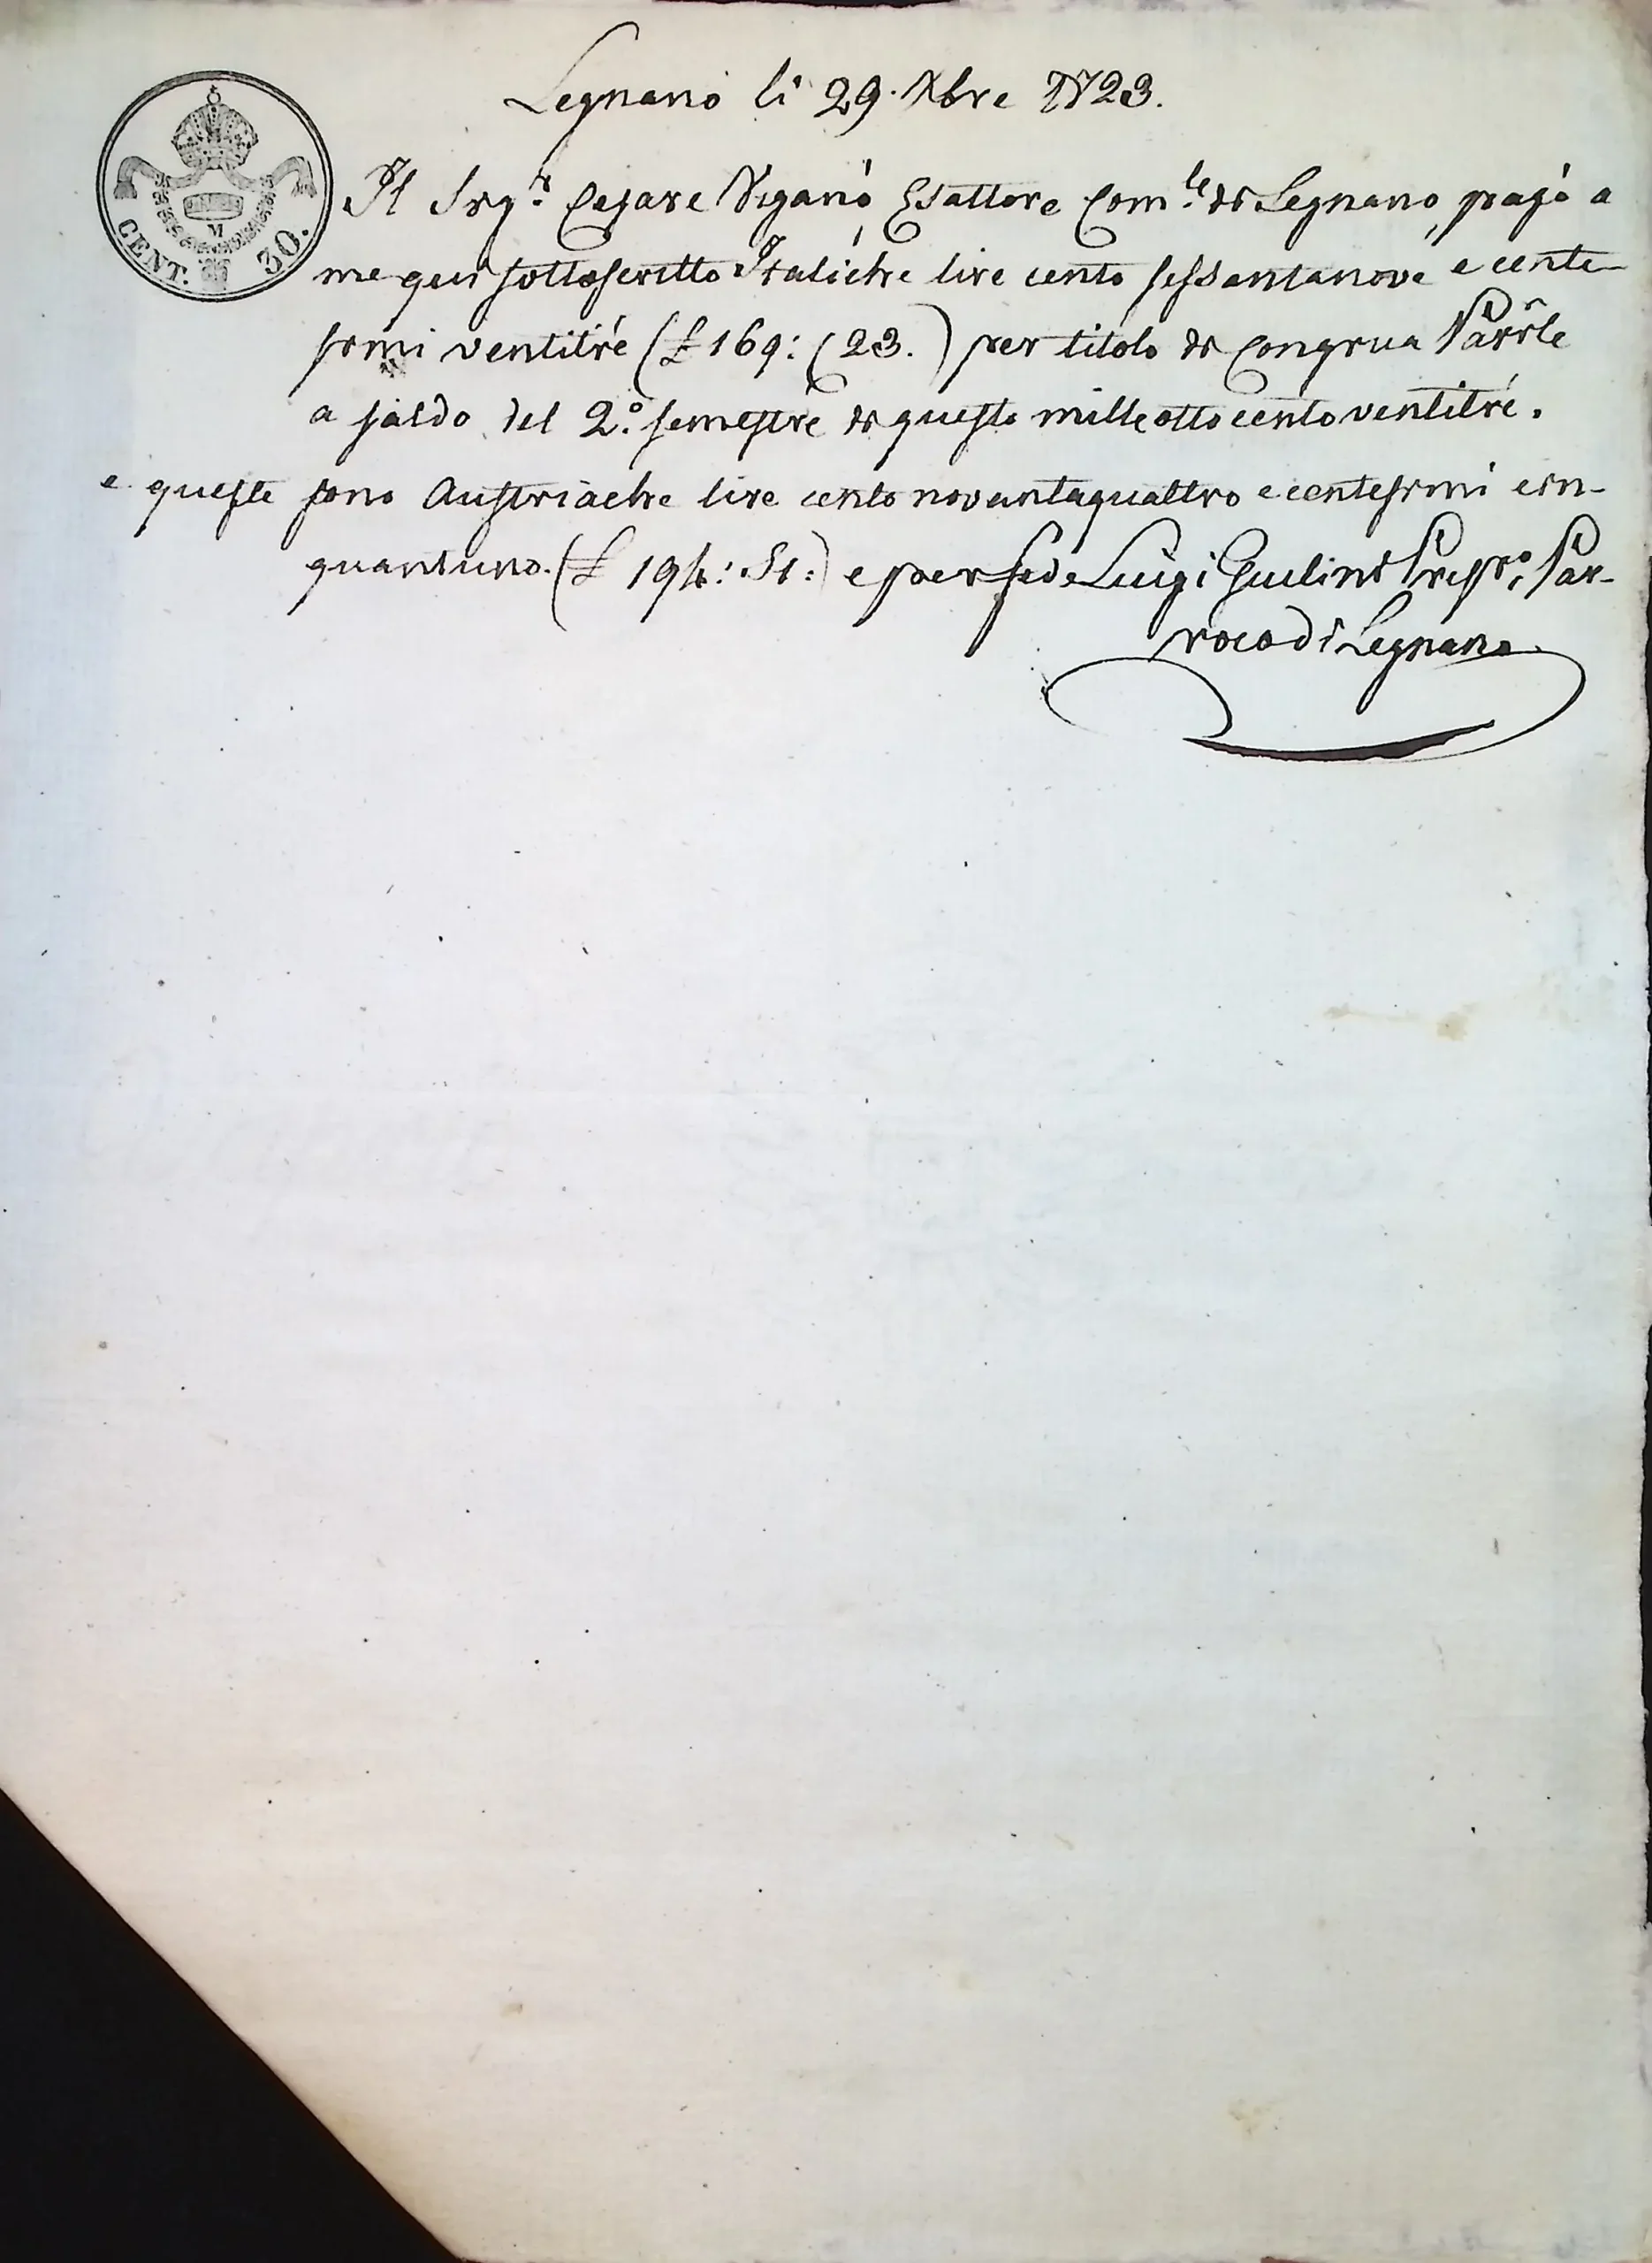 Legnano li 29. Xbre 1823.
CENT. 30.
M
Il Sigr. Cesare Viganò Esattore Com.le di Legnano, pagò a
me qui sottoscritto Italiche lire cento sessantanove e cente-
simi ventitrè (£ 169: (23.) per titolo di Congrua Parrle
a saldo del 2.o semestre di questo mille otto cento ventitrè.
e queste sono Austriache lire cento novantaquattro e centesimi cin-
quantuno. (£ 194: 51:) e per fede Luigi Giulini Par-
roco di Legnano.